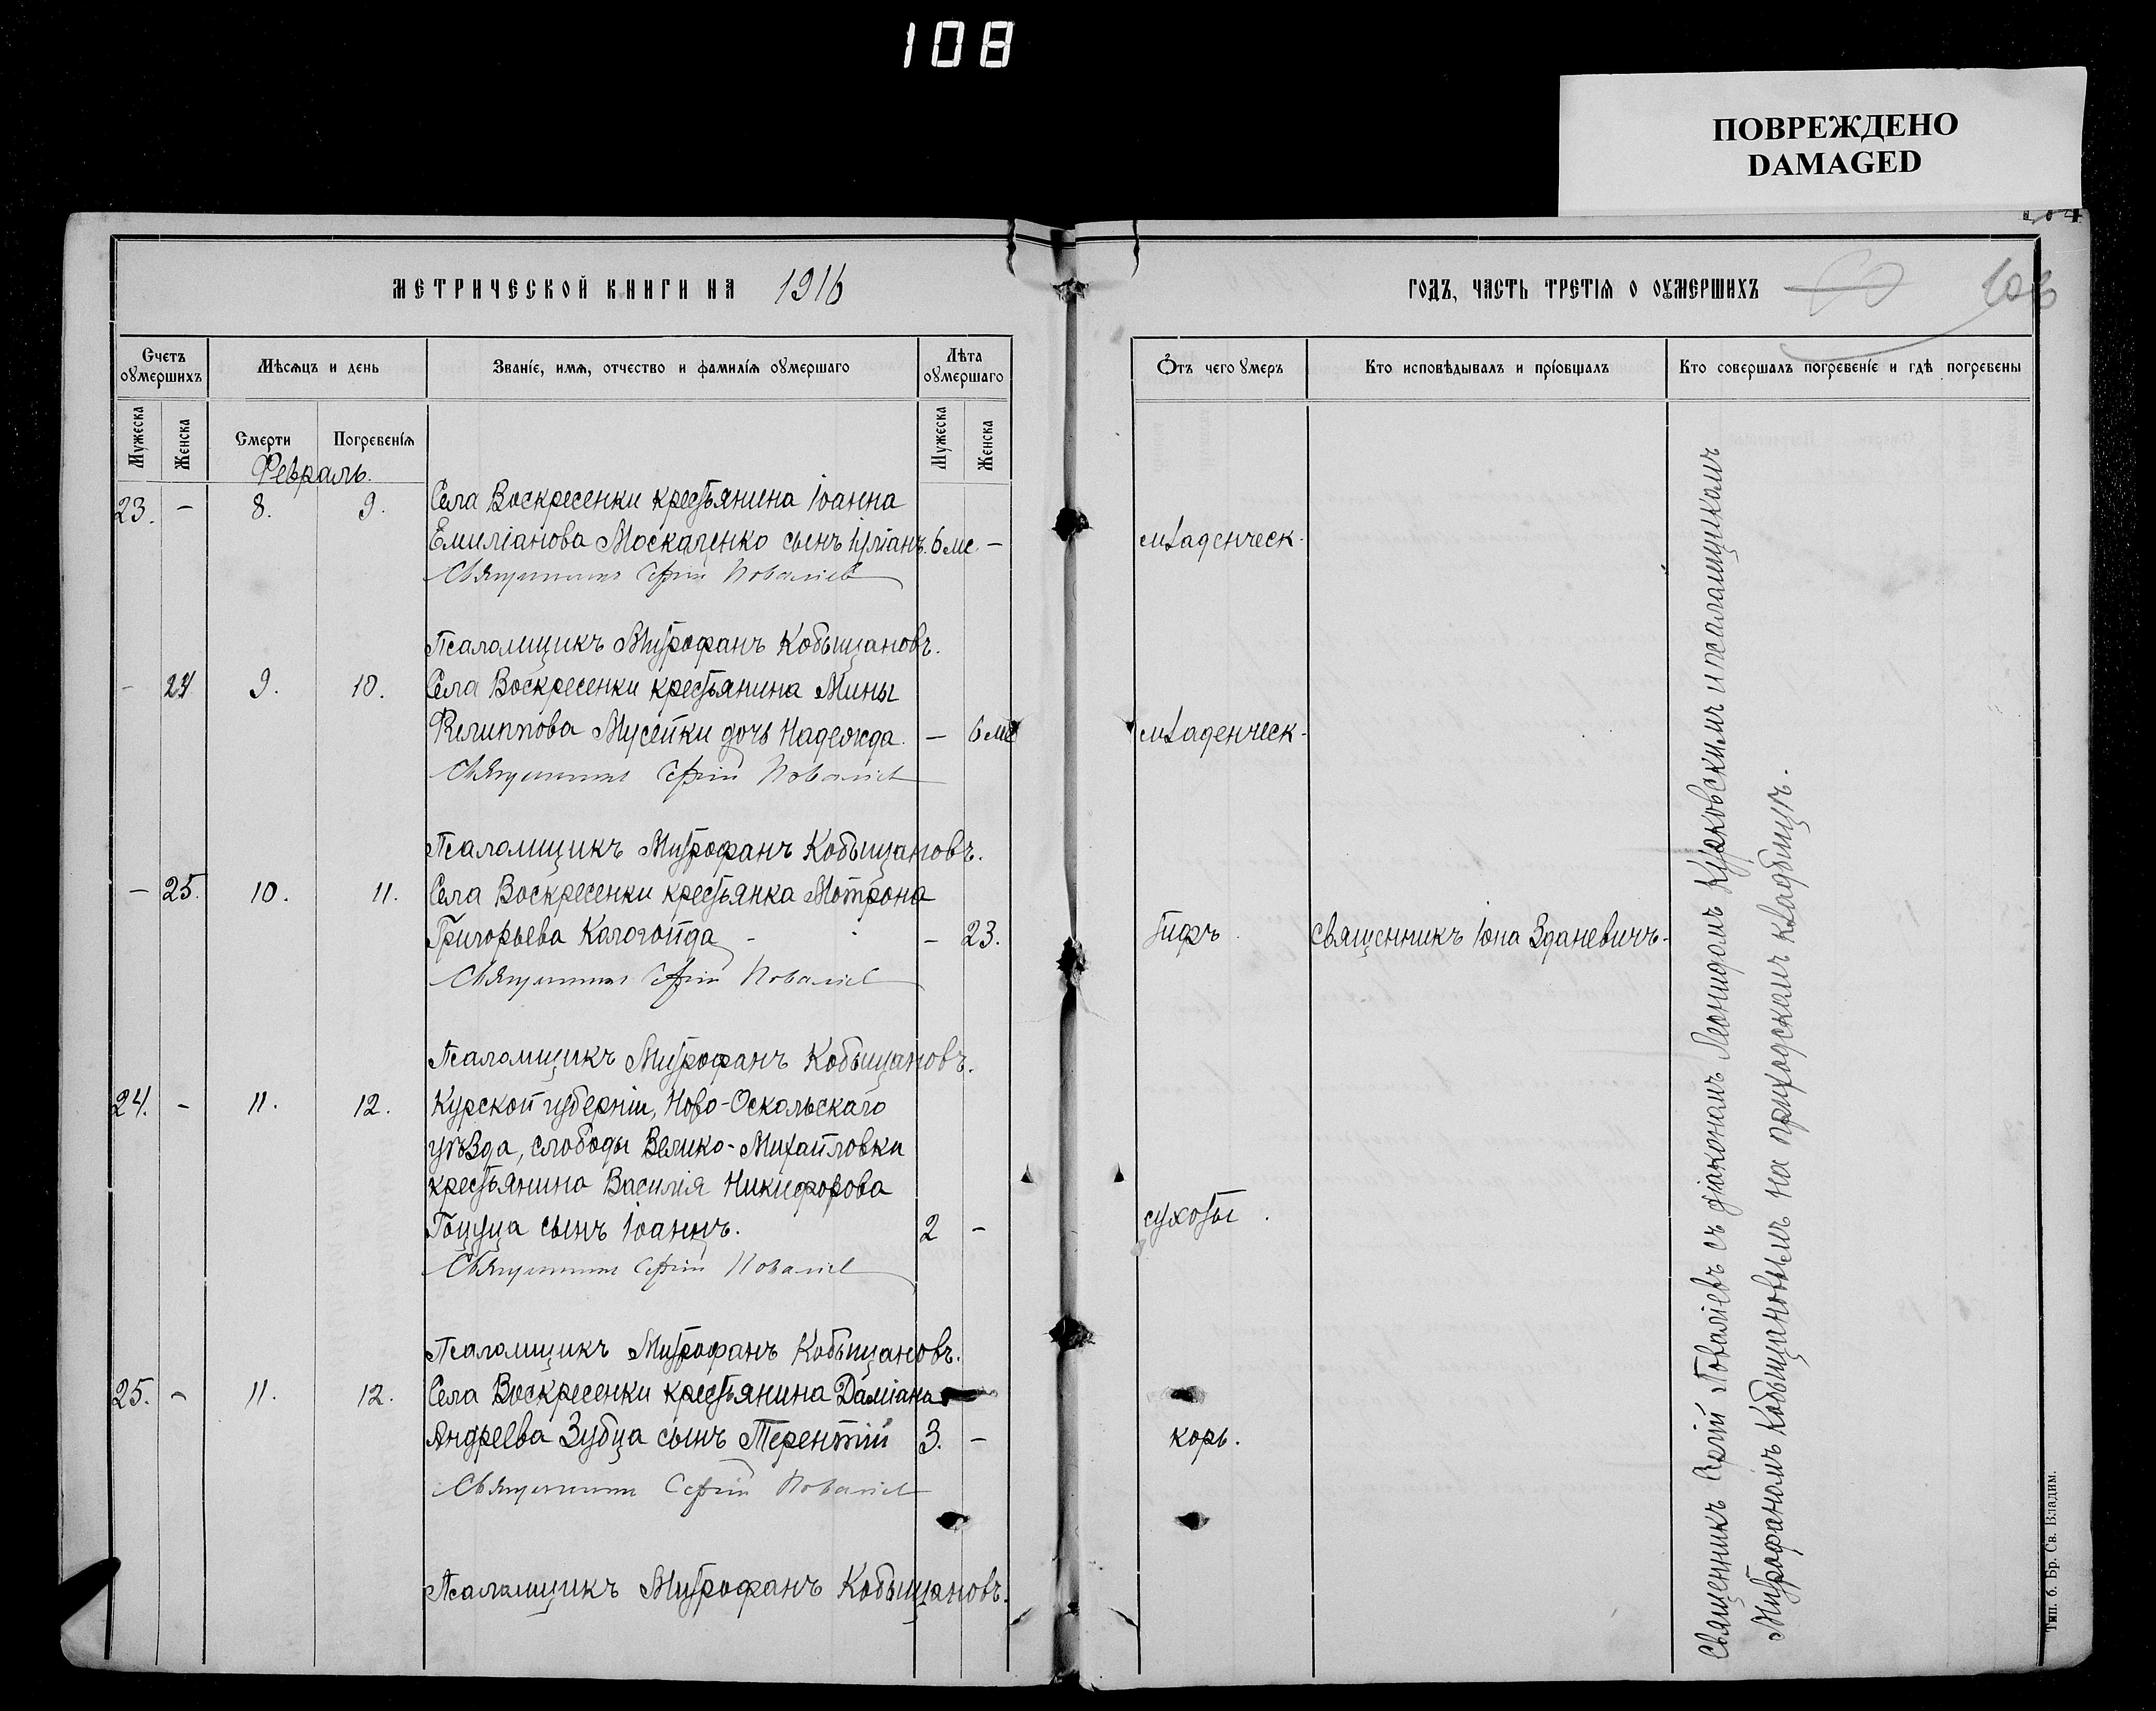 108
ПОВРЕЖДЕНО
DAMAGED
МЕТРИЧЕСКОЙ КНИГИ НА 1916
ГОДЪ, ЧАСТЬ ТРЕТІЯ О ОУМЕРШИХЪ
103
Счетъ оумершихъ
Мѣсяцъ и день
Званіе, имя, отчество и фамилія оумершаго
Лѣта оумершаго
Ѿтъ чего оумеръ
Кто исповѣдывалъ и пріобщалъ
Кто совершалъ погребеніе и гдѣ погребены
Мужеска
Женска
Смерти
Погребенія
Мужеска
Женска
Февраль.
23. – 8. 9. Села Воскресенки крестьянина Іоанна
Емиліанова Москаленко сынъ Іуліанъ. 6 ме. – младенческ.
Священникъ Сергій Поваліевъ
Псаломщикъ Митрофанъ Кобыщановъ.
– 24 9. 10. Села Воскресенки крестьянина Мины
Филиппова Мусейки дочь Надежда. – 6 ме младенческ-
Священникъ Сергій Поваліевъ
Псаломщикъ Митрофанъ Кобыщановъ.
– 25. 10. 11. Села Воскресенки крестьянка Мотрона
Григорьева Калогойда – – 23. Тифъ. Священникъ Іона Зданевичъ-
Священникъ Сергій Поваліевъ
Псаломщикъ Митрофанъ Кобыщановъ.
24. – 11. 12. Курской губерніи, Ново-Оскольскаго
уѣзда, слободы Велико-Михайловки
крестьянина Василія Никифорова
Гоцуца сынъ Іоаннъ. 2 – сухоты.
Священникъ Сергій Поваліевъ
Псаломщикъ Митрофанъ Кобыщановъ.
25. – 11. 12. Села Воскресенки крестьянина Даміана
Андреева Зубца сынъ Терентій 3. – корь.
Священникъ Сергій Поваліевъ
Псаломщикъ Митрофанъ Кобыщановъ.
Священникъ Сергій Поваліевъ съ діакономъ Леонидомъ Курковскимъ и псаломщикомъ
Митрофаномъ Кобыщановымъ на приходскомъ кладбищѣ.
Тип. б. Бр. Св. Владим.